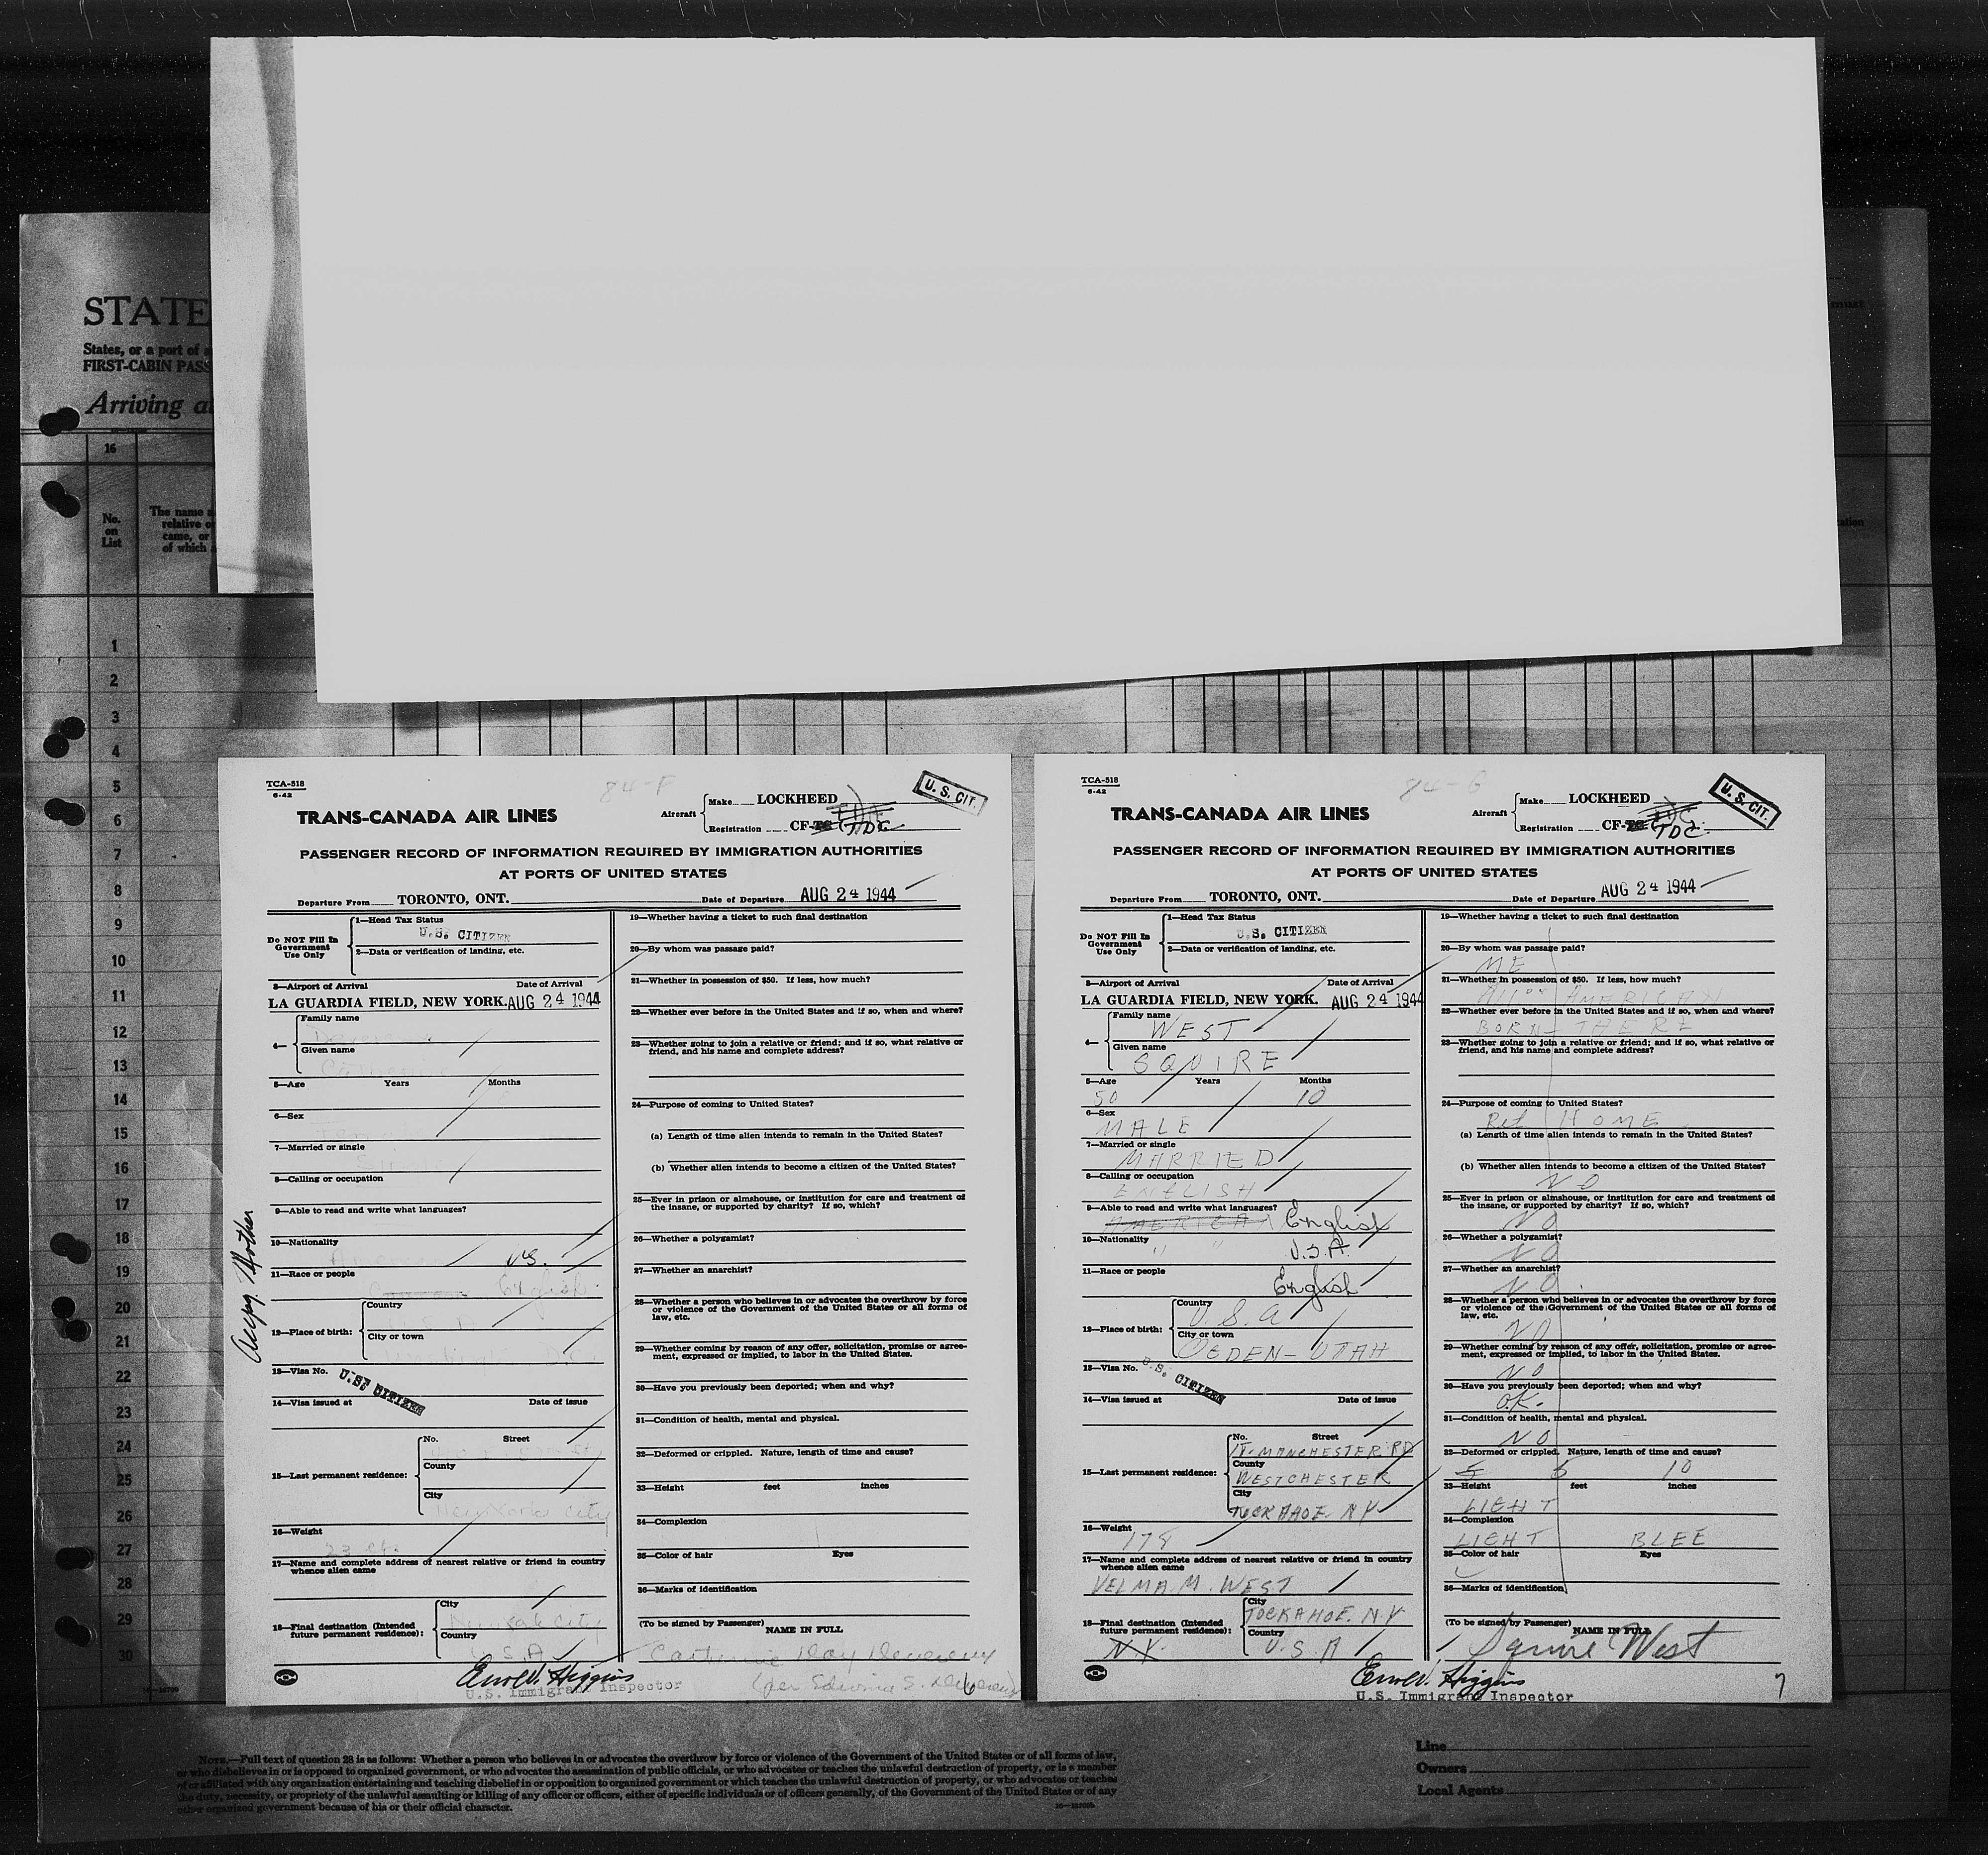 STATE
States, or a port of
FIRST-CABIN PASS
Arriving
16
No.
on
List
The name
relative
came, or
of which
must
1
2
3
4
5
6
7
8
9
10
11
12
13
14
15
16
17
18
19
20
21
22
23
24
25
26
27
28
29
30
TCA-518
6-42
84-F
U. S. CIT.
TRANS-CANADA AIR LINES
Aircraft
Make LOCKHEED
Registration CF- TDC
PASSENGER RECORD OF INFORMATION REQUIRED BY IMMIGRATION AUTHORITIES
AT PORTS OF UNITED STATES
Departure From TORONTO, ONT. Date of Departure AUG 24 1944
Do NOT Fill In
Government
Use Only
1—Head Tax Status
U.S. CITIZEN
2—Data or verification of landing, etc.
3—Airport of Arrival Date of Arrival
LA GUARDIA FIELD, NEW YORK. AUG 24 1944
4—
Family name
Given name
5—Age Years Months
6—Sex
7—Married or single
8—Calling or occupation
9—Able to read and write what languages?
10—Nationality
U.S.
11—Race or people
English
12—Place of birth:
Country
City or town
13—Visa No.
U.S. CITIZEN
14—Visa issued at Date of issue
15—Last permanent residence:
No. Street
County
City
New York City
16—Weight
17—Name and complete address of nearest relative or friend in country
whence alien came
18—Final destination (Intended
future permanent residence):
City
New York City
Country
U.S.A
Accpg. Mother
19—Whether having a ticket to such final destination
20—By whom was passage paid?
21—Whether in possession of $50. If less, how much?
22—Whether ever before in the United States and if so, when and where?
23—Whether going to join a relative or friend; and if so, what relative or
friend, and his name and complete address?
24—Purpose of coming to United States?
(a) Length of time alien intends to remain in the United States?
(b) Whether alien intends to become a citizen of the United States?
25—Ever in prison or almshouse, or institution for care and treatment of
the insane, or supported by charity? If so, which?
26—Whether a polygamist?
27—Whether an anarchist?
28—Whether a person who believes in or advocates the overthrow by force
or violence of the Government of the United States or all forms of
law, etc.
29—Whether coming by reason of any offer, solicitation, promise or agree-
ment, expressed or implied, to labor in the United States.
30—Have you previously been deported; when and why?
31—Condition of health, mental and physical.
32—Deformed or crippled. Nature, length of time and cause?
33—Height feet inches
34—Complexion
35—Color of hair Eyes
36—Marks of identification
(To be signed by Passenger)
NAME IN FULL
Catherine Day Devereux
(per Edwina S. Devereux)
6
U.S. Immigrant Inspector
TCA-518
6-42
84-G
U. S. CIT.
TRANS-CANADA AIR LINES
Aircraft
Make LOCKHEED
Registration CF- TDC
PASSENGER RECORD OF INFORMATION REQUIRED BY IMMIGRATION AUTHORITIES
AT PORTS OF UNITED STATES
Departure From TORONTO, ONT. Date of Departure AUG 24 1944
Do NOT Fill In
Government
Use Only
1—Head Tax Status
U.S. CITIZEN
2—Data or verification of landing, etc.
3—Airport of Arrival Date of Arrival
LA GUARDIA FIELD, NEW YORK. AUG 24 1944
4—
Family name
WEST
Given name
SQUIRE
5—Age Years Months
50 10
6—Sex
MALE
7—Married or single
MARRIED
8—Calling or occupation
ENGLISH
9—Able to read and write what languages?
AMERICAN English
10—Nationality
" " U.S.A.
11—Race or people
English
12—Place of birth:
Country
U.S.A
City or town
OGDEN - UTAH
13—Visa No.
U.S. CITIZEN
14—Visa issued at Date of issue
15—Last permanent residence:
No. Street
MANCHESTER RD
County
WESTCHESTER
City
TUCKAHOE N Y
16—Weight
178
17—Name and complete address of nearest relative or friend in country
whence alien came
VELMA. M. WEST
18—Final destination (Intended
future permanent residence):
N.Y.
City
TOCKAHOE. N.Y
Country
U.S.A
19—Whether having a ticket to such final destination
20—By whom was passage paid?
ME
21—Whether in possession of $50. If less, how much?
AMERICAN
22—Whether ever before in the United States and if so, when and where?
BORN - THERE
23—Whether going to join a relative or friend; and if so, what relative or
friend, and his name and complete address?
24—Purpose of coming to United States?
Ret HOME
(a) Length of time alien intends to remain in the United States?
(b) Whether alien intends to become a citizen of the United States?
NO
25—Ever in prison or almshouse, or institution for care and treatment of
the insane, or supported by charity? If so, which?
NO
26—Whether a polygamist?
NO
27—Whether an anarchist?
NO
28—Whether a person who believes in or advocates the overthrow by force
or violence of the Government of the United States or all forms of
law, etc.
NO
29—Whether coming by reason of any offer, solicitation, promise or agree-
ment, expressed or implied, to labor in the United States.
NO
30—Have you previously been deported; when and why?
O.K.
31—Condition of health, mental and physical.
NO
32—Deformed or crippled. Nature, length of time and cause?
5 10
33—Height feet inches
LIGHT
34—Complexion
LIGHT BLEE
35—Color of hair Eyes
36—Marks of identification
(To be signed by Passenger)
NAME IN FULL
Squire West
7
U.S. Immigrant Inspector
NOTE.—Full text of question 28 is as follows: Whether a person who believes in or advocates the overthrow by force or violence of the Government of the United States or of all forms of law,
or who disbelieves in or is opposed to organized government, or who advocates the assassination of public officials, or who advocates or teaches the unlawful destruction of property, or is a member
of or affiliated with any organization entertaining and teaching disbelief in or opposition to organized government or which teaches the unlawful destruction of property, or who advocates or teaches
the duty, necessity, or propriety of the unlawful assaulting or killing of any officer or officers, either of specific individuals or of officers generally, of the Government of the United States or of any
other organized government because of his or their official character.
Line
Owners
Local Agents